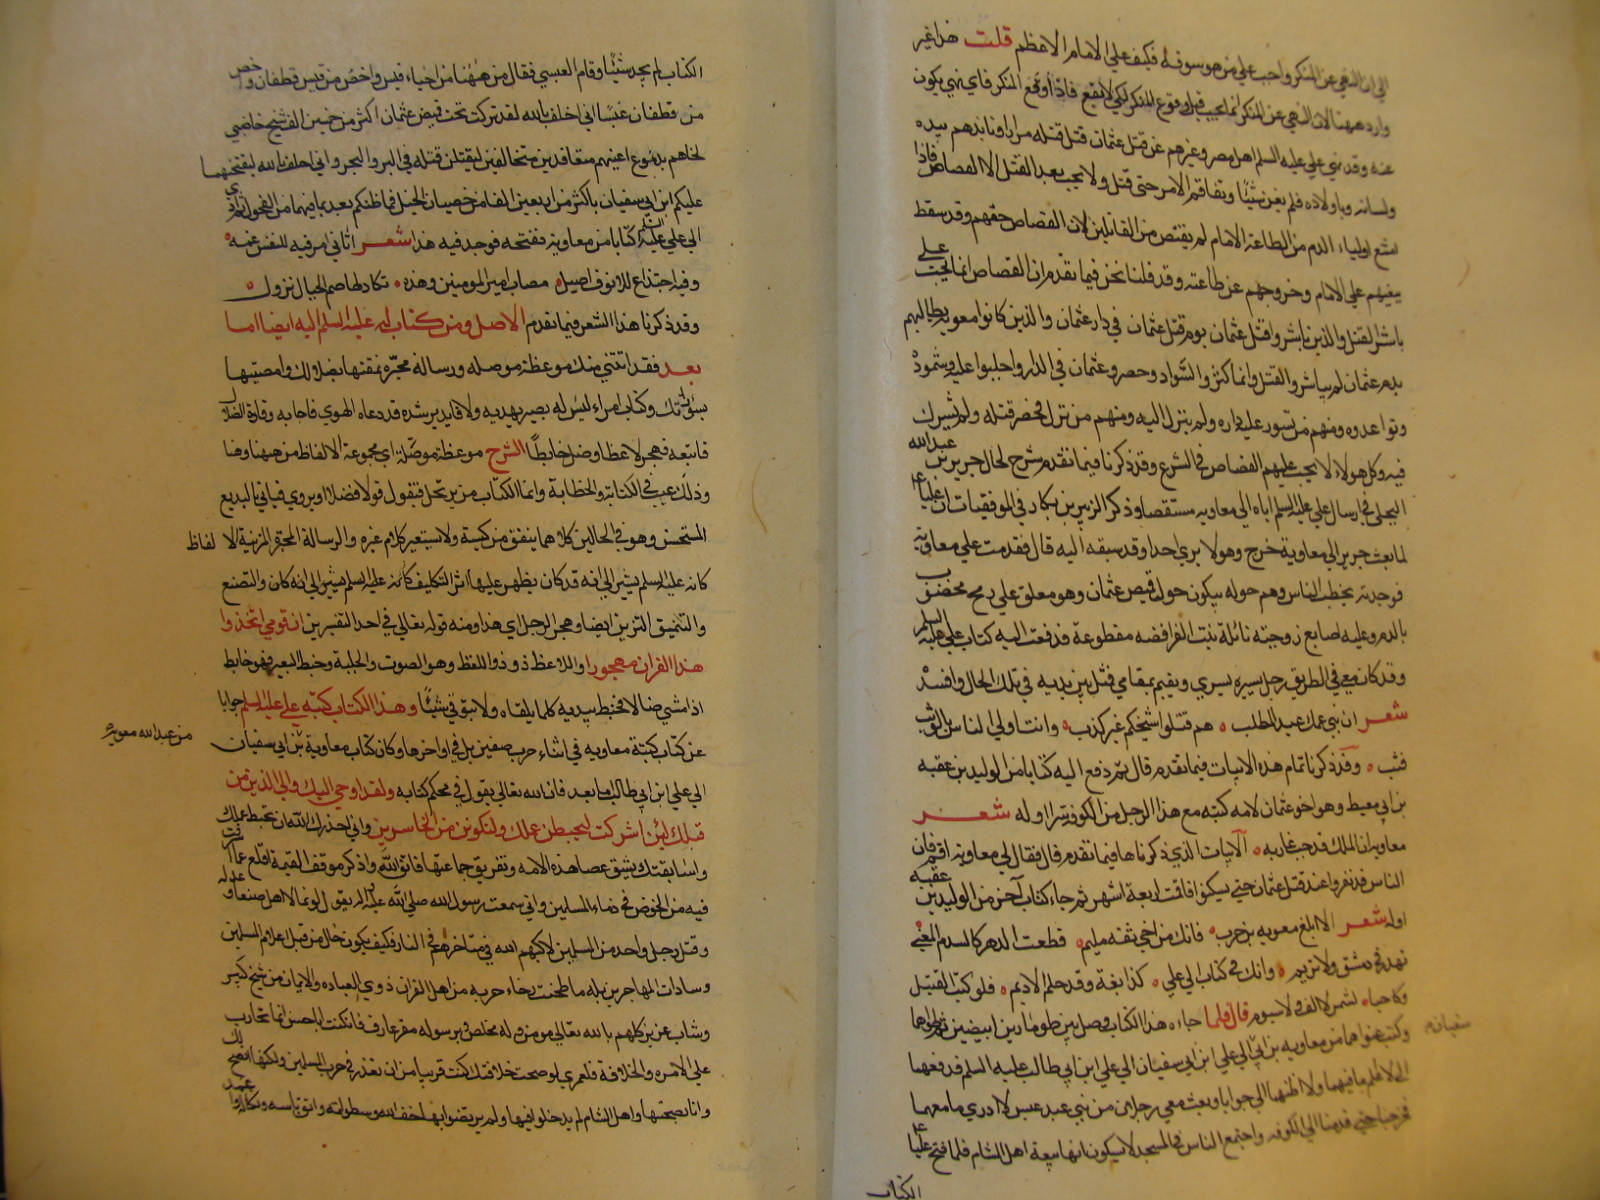 الي ان النهي عن المنكر واجب علي من هو سوقة فكيف علي الامام الاعظم قلت هذا غير
وارد ههنا لان النهي عن المنكر انما يجب قبل وقوع المنكر لكي لا يقع فاذا وقع المنكر فاي نهي يكون
عنه وقد نهي علي عليه السلم اهل مصر وغيرهم عن قتل عثمان قبل قتله مرارا ونابذهم بيده
ولسانه وباولاده فلم يغن شيئا وتفاقم الامر حتي قتل ولا يجب بعد القتل الا القصاص فاذا
امتنع اولياء الدم من الطاعة الامام لم يقتص من القاتلين لان القصاص حقهم وقد سقط
ببغيهم علي الامام وخروجهم عن طاعته وقد قلنا نحن فيما تقدم ان القصاص انما يجب علي
باشر القتل والذين باشروا قتل عثمان يوم قتل عثمان في دار عثمان والذين كانوا معوية يطالبهم
بدم عثمان لم يباشروا القتل وانما كثروا السواد وحصروا عثمان في الدار واجلبوا عليه وشتموه
وتواعدوه ومنهم من تسور عليه داره ولم ينزل اليه ومنهم من نزل فحضر قتله ولم يشرك
فيه وكل هولاء لا يجب عليهم القصاص في الشرع وقد ذكرنا فيما تقدم شرح لحال جرير بن عبد الله
البجلي في ارسال علي عليه السلم اياه الي معاويه مستقصا وذكر الزبير بن بكار في الموفقيات ان عليا
لما بعث جرير الي معاوية خرج وهو لا يري احدا قد سبقه اليه قال فقدمت علي معاوية
فوجدته يخطب الناس وهم حوله يبكون حول قميص عثمان وهو معلق علي رمح مخضب
بالدم وعليه اصابع زوجته نائلة بنت الفرافضه مقطوعة فدفعت اليه كتاب علي عليه السلم
وقد كان معي في الطريق رجل يسير بسيري ويقيم بمقامي فمثل بين يديه في تلك الحال وانشد
شعر ان بني عمك عبد المطلب هم قتلوا شيخكم غير كذب وانت اولي الناس بالوثب
فثب وقد ذكرنا تمام هذه الابيات فيما تقدم قال ثم دفع اليه كتابا من الوليد بن عقبه
بن ابي معيط وهو اخو عثمان لامه كتبه مع هذا الرجل من الكوفة سرا اوله شعر
معاوي ان الملك قد جب غاربه الابيات الذي ذكرناها فيما تقدم قال فقال لي معاويه اقم فان
الناس قد نفروا عند قتل عثمان حتي يسكنوا فاقمت اربعة اشهر ثم جاءه كتاب آخر من الوليد بن عقبه
اوله شعر الا ابلغ معويه بن حرب فانك من اخي ثقه مليم قطعت الدهر كالسدم المعني
تهدر في دمشق ولا تريم وانك في كتاب الي علي كدابغة وقد حلم الاديم فلو كنت القتيل
وكا حيا لشمر لا الف ولا سوم قال فلما جاءه هذا الكتاب وصل بين طومارين ابيضين ثم طواهما
وكتب عنوانهما من معاويه بن ابي الي علي ابن ابي سفيان الي علي ابن ابي طالب عليه السلم فدفعها
سفيان
الي لا اعلم ما فيهما ولا اظنها الي جوابا وبعث معي رجلا من بني عبد عبس لا ادري ما معهما
فخرجنا حتي قدمنا الي الكوفه واجتمع الناس في المسجد لا يشكون انها بيعة اهل الشام فلما فتح عليا
الكتاب
الكتاب لم يجد شيئا وقام العبسي فقال من ههنا من احياء قيس واخص من قيس قطفان واخص
من قطفان عبسا اني احلف بالله لقد تركت تحت قميص عثمان اكثر من خمسين الف شيخ خاضبي
لحاهم بدموع اعينهم متعاقدين متحالفين ليقتلن قتله في البر والبحر واني احلف بالله ليقتحمنها
عليكم ابن ابي سفيان باكثر من اربعين الفا من خصيان الخيل فما ظنكم بعد بما فيها من الفحول ثم
الي علي عليه كتابا من معاوية ففتحه فوجد فيه هذا شعر اتاني امر فيه للنفس غمه
وفيه اجتذاع للانوف اصيل مصاب امير المومنين وهذه تكاد لها صم الجبال تزول
وقد ذكرنا هذا الشعر فيما تقدم الاصل ومن كتاب له عليه السلم اليه ايضا اما
بعد فقد اتتني منك موعظة موصله ورسالة محبرة نمقتها بضلالك وامضيتها
بسؤ رايك وكتاب امراء ليس له بصير يهديه ولا قايد يرشده قد دعاه الهوي فاجابه وقاده الضلا
فاتبعه فهجر لا عظا وضل خابطا الشرح موعظة موصلة اي مجموعة الالفاظ من ههنا وهنا
وذلك عيب في الكتابه والخطابة وانما الكتاب من يرتجل فيقول قولا فضلا او يروي فياتي بالبديع
المستحسن وهو في الحالين كلاهما ينفق من كيسة ولا يستعير كلام غيره والرسالة المحبرة المزينة الالفاظ
كانه عليه السلم يشير الي انه قد كان يظهر عليها اثر التكليف كانه عليه السلم يشير الي انه كان والتصنع
والتنميق التزيين ايضا وهجر الرجل اي هذا ومنه قوله تعالي في احد التفسيرين ان قومي اتخذوا
هذا القران مهجورا واللاعظ ذو ذوا اللغط وهو الصوت والجلبة وخبط البعير فهو خابط
اذا مشي ضالا فخبط بيديه كلما يلقاه ولا يتوقي شيئا وهذا الكتاب كتبه علي عليه السلم جوابا
عن كتاب كتبة معاويه في اثناء حرب صفين بل في اواخرها وكان كتاب معاوية بن ابي سفيان
من عبد الله معويه
الي علي ابن ابي طالب اما بعد فان الله تعالي يقول في محكم كتابه ولقد اوحي اليك والي الذين من
قبلك لئن اشركت ليحبطن عملك ولتكونن من الخاسرين واني احذرك الله ان تحبط عملك
وسابقتك بشق عصا هذه الامه وتفريق جماعتها فاتق الله واذكر موقف القيمة اقلع عما اسرفت
فيه من الخوض في دماء المسلمين واني سمعت رسول الله صلي الله عليه يقول لو تمالا اهل صنعا وعدن
وقتل رجل واحد من المسلمين لاكبهم الله في مناخرهم في النار فكيف يكون حال من قتل اعلام المسلمين
وسادات المهاجرين بله ما طحنت رحاء حربه من اهل القران ذوي العباده والايمان من شيخ كبير
وشاب عزيز كلهم بالله تعالي مومن وله مخلص في برسوله مقر عارف فان كنت ابا حسن انما تحارب
علي الامره والخلافة فلعمري لو صحت خلافتك كنت قريبا من ان تعذر في حرب المسلمين ولكنها لم تصح لك
وانا بصحتها واهل الشام لم يدخلوا فيها ولم يرتضوا بها خف الله وسطواته واتق باسه ونكاله